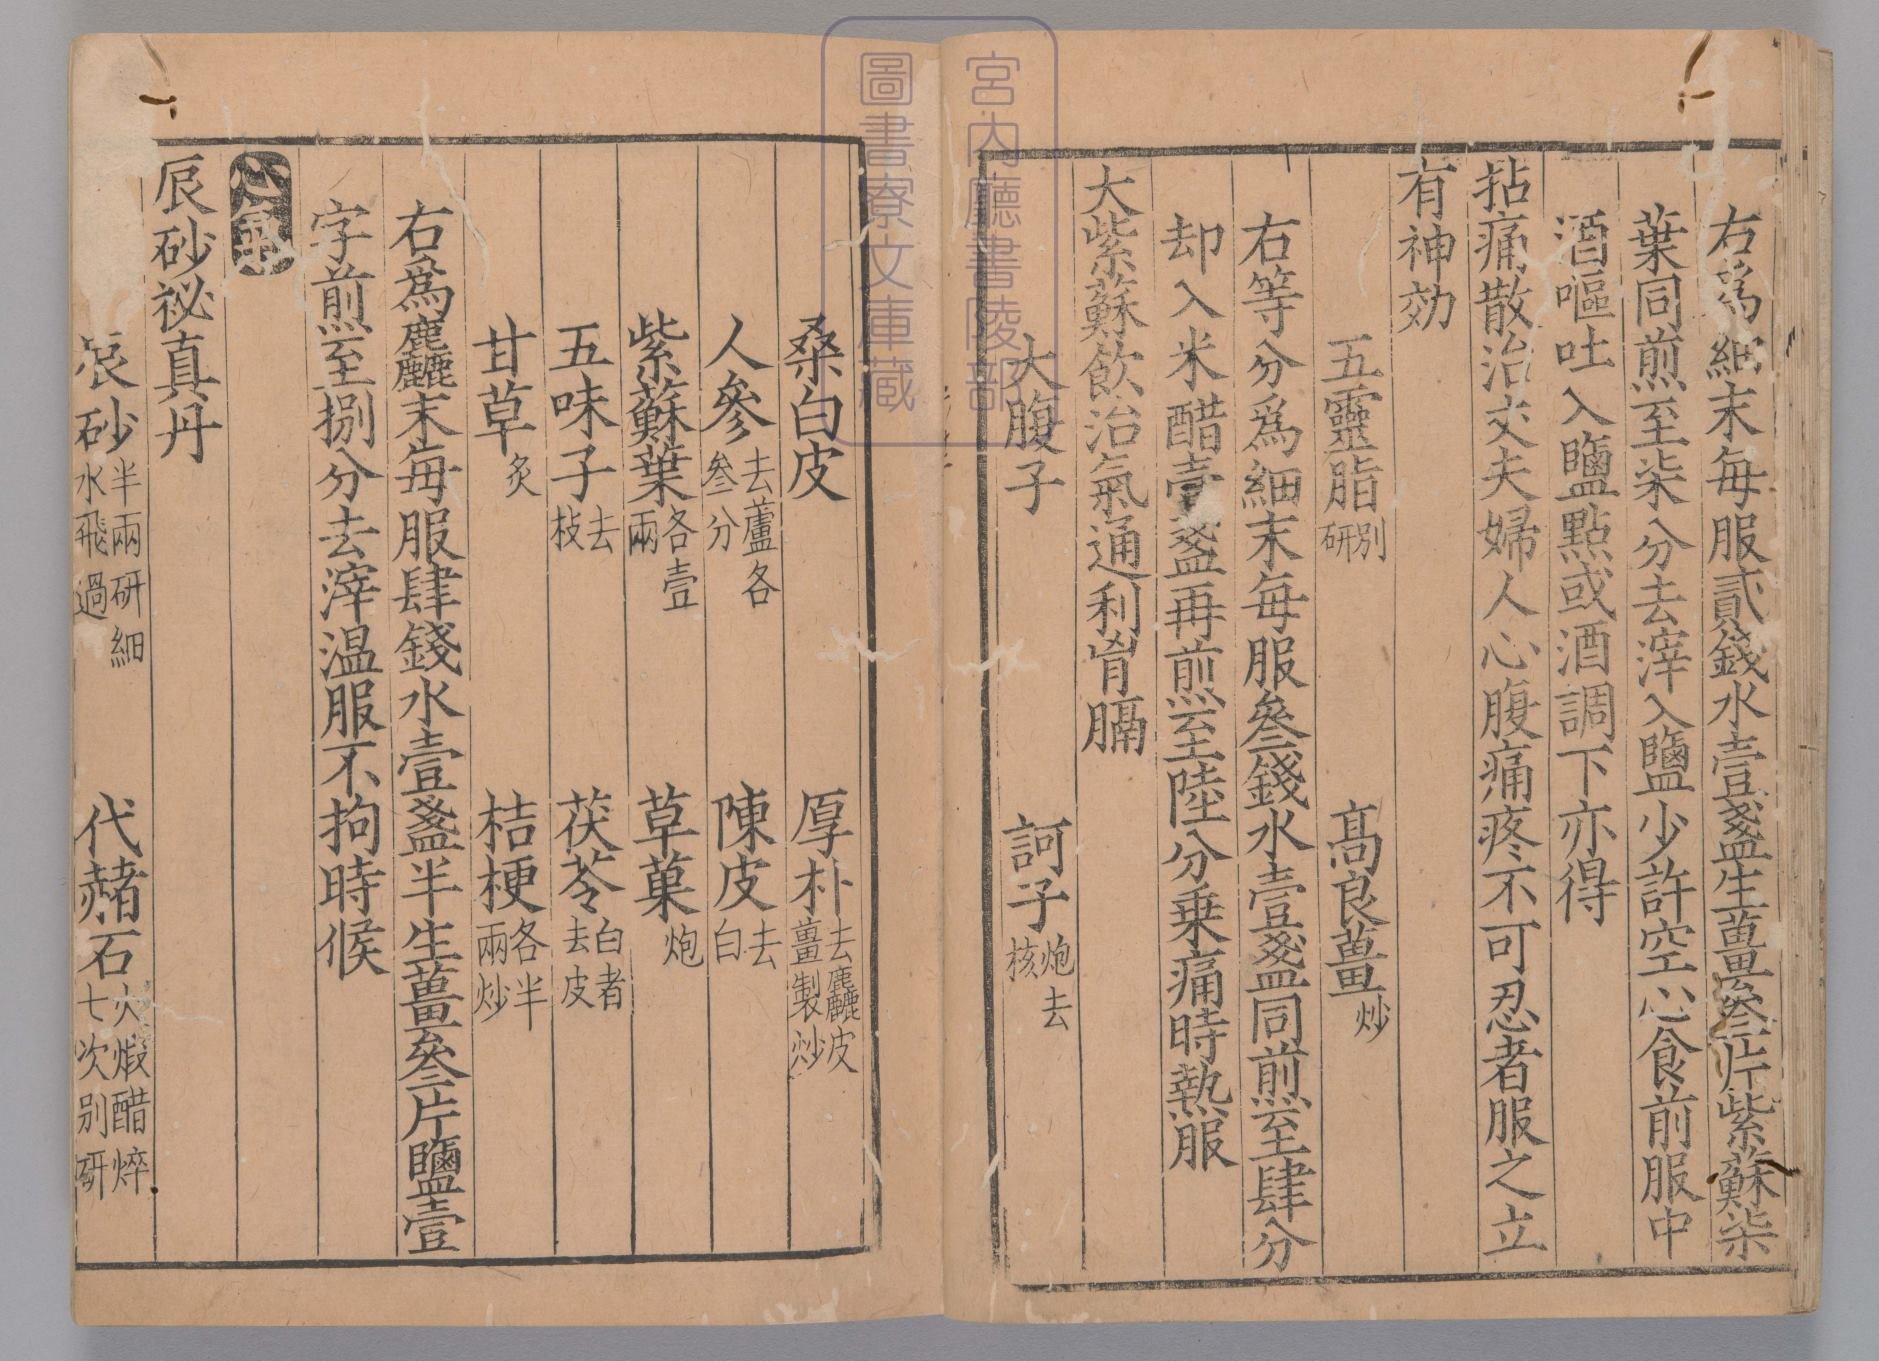 右爲細末每服貳錢水壹盞生薑叄片紫蘇柒
葉同煎至柒分去滓入鹽少許空心食前服中
酒嘔吐入鹽點或酒調下亦得
拈痛散治丈夫婦人心腹痛疼不可忍者服之立
有神効
五靈脂別研 高良薑炒
右等分爲細末每服叄錢水壹盞同煎至肆分
却入米醋壹盞再煎至陸分乗痛時熱服
大紫蘇飲治氣通利胷膈
大腹子 訶子炮去核
桑白皮 厚朴去麤皮薑製炒
人參去蘆各叄分 陳皮去白
紫蘇葉各壹兩 草菓炮
五味子去枝 茯苓白者去皮
甘草炙 桔梗各半兩炒
右爲麤末每服肆錢水壹盞半生薑叄片鹽壹
字煎至捌分去滓温服不拘時候
心
辰砂祕真丹
辰砂半兩研細水飛過 代赭石火煅醋焠七次别研
宮内廳書陵部
圖書寮文庫藏